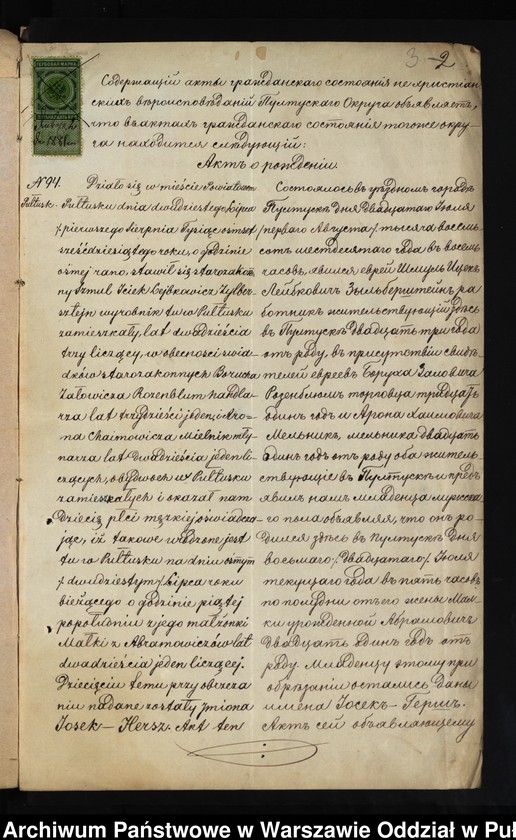 3 -2
ГЕРБОВАЯ МАРКА
Содержащій акты гражданскаго состоянія не христіан
скихъ вѣроисповѣданій Пултускаго Округа объявляетъ,
что въ актахъ гражданскаго состоянія тогоже окру-
га находится слѣдующій:
Актъ о рожденіи.
N 94.
Pułtusk.
Działo się w mieście Powiatowem
Pułtusku dnia dwudziestego Lipca
/ pierwszego Sierpnia / tysiąc ośmset
sześćdziesiątego roku, o godzinie
ósmej rano, stawił się starozakon
ny Szmul Icek Lejbkowicz Zylber-
sztejn wyrobnik tu w Pułtusku
zamieszkały, lat dwadzieścia
trzy liczący, w obecności świad
ków starozakonnych Borucha
Załowicza Rozenblum handla-
rza lat trzydzieści jeden, i Aro-
na Chaimowicza Mielnik mły-
narza lat dwadzieścia jeden li-
czących, obydwóch w Pułtusku
zamieszkałych i okazał nam
Dziecię płci męzkiej oświadcza-
jąc, iż takowe urodzone jest
tu w Pułtusku na dniu ósmym
/ dwudziestym / Lipca roku
bieżącego o godzinie piątej
popołudniu z jego małżonki
Małki z Abramowiczów lat
dwadzieścia jeden liczącej.
Dziecięciu temu przy obrzeza
niu nadane zostały imiona
Josek – Hersz. Akt ten
Состоялось въ уѣздномъ городѣ
Пултускѣ Дня Двадцатаго Іюля
/перваго Августа/ тысяча восемь-
сотъ шестьдесятаго года въ восемь
часовъ, явился еврей Шмуль Ицекъ
Лейбковичъ Зыльберштейнъ ра
ботникъ жительствующій здѣсь
въ Пултускѣ двадцать три года
отъ роду, въ присутствіи свидѣ-
телей евреевъ Боруха Заловича
Розенблюмъ торговца тридцать
одинъ годъ и Арона Хаимовича
Мельникъ, мельника двадцать
одинъ годъ отъ роду оба житель-
ствующіе въ Пултускѣ и предъ
явилъ намъ младенца мужска
го пола объявляя, что онъ ро-
дился здѣсь въ Пултускѣ Дня
восьмаго /двадцатаго/ Іюля
текущаго года въ пять часовъ
по полудни отъ его жены Мал-
ки урожденной Абрамовичъ
двадцать одинъ годъ отъ
роду. Младенцу этому при
обрѣзаніи остались даны
имена Іосекъ – Гершъ.
Актъ сей объявляющему
Archiwum Państwowe w Warszawie Oddział w Puł